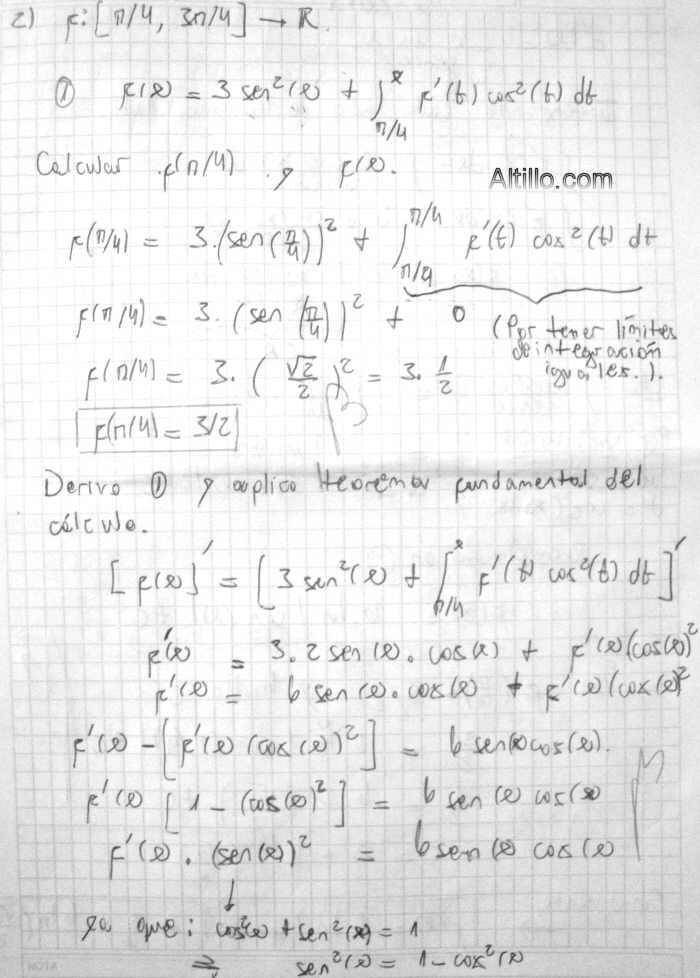 2) f: [π/4, 3π/4] → R.
① f(x) = 3 sen²(x) + ∫_{π/4}^{x} f'(t) cos²(t) dt
Calcular f(π/4) y f(x).
Altillo.com
f(π/4) = 3.(sen(π/4))² + ∫_{π/4}^{π/4} f'(t) cos²(t) dt
f(π/4) = 3.(sen(π/4))² + 0 (Por tener límites
de integración
iguales.).
f(π/4) = 3.(√2/2)² = 3.1/2
f(π/4) = 3/2
Derivo ① y aplico teorema fundamental del
cálculo.
[f(x)]' = [3 sen²(x) + ∫_{π/4}^{x} f'(t) cos²(t) dt]'
f'(x) = 3.2 sen(x). cos(x) + f'(x)(cos(x))²
f'(x) = 6 sen(x).cos(x) + f'(x)(cos(x))²
f'(x) - [f'(x)(cos(x))²] = 6 sen(x)cos(x).
f'(x) [1 - (cos(x))²] = 6 sen(x) cos(x)
f'(x). (sen(x))² = 6 sen(x) cos(x)
↓
ya que: cos²(x) + sen²(x) = 1
⇒ sen²(x) = 1 - cos²(x)